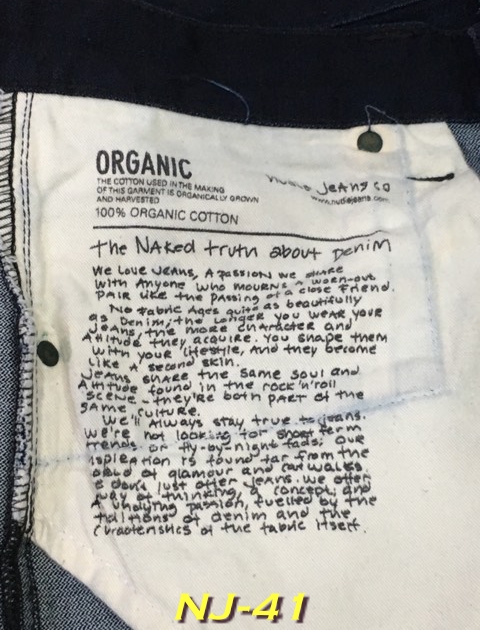 ORGANIC
THE COTTON USED IN THE MAKING
OF THIS GARMENT IS ORGANICALLY GROWN
AND HARVESTED
100% ORGANIC COTTON
nudie JEANS CO
www.nudiejeans.com
the NAKED truth about DENIM
We LOVE JEANS, A PASSION we share
with Anyone who mourns a worn-out
PAIR Like the Passing of a close Friend.
No Fabric Ages quite as beautifully
as Denim, the Longer you wear your
JEANS, the more character and
Attitude they acquire. You shape them
with your lifestyle, And they become
like A second skin.
JEANS SHARE the same soul and
Attitude found in the rock'n'roll
scene - they're both part of the
SAME culture.
We'll Always stay true to jeans.
We're not looking for short term
trends or fly-by-night fads. Our
inspiration is found far from the
of glamour and catwalks.
don't just offer jeans. we offer
way of thinking, a concept, and
A undying passion, fuelled by the
of denim and the
of the fabric itself.
NJ-41